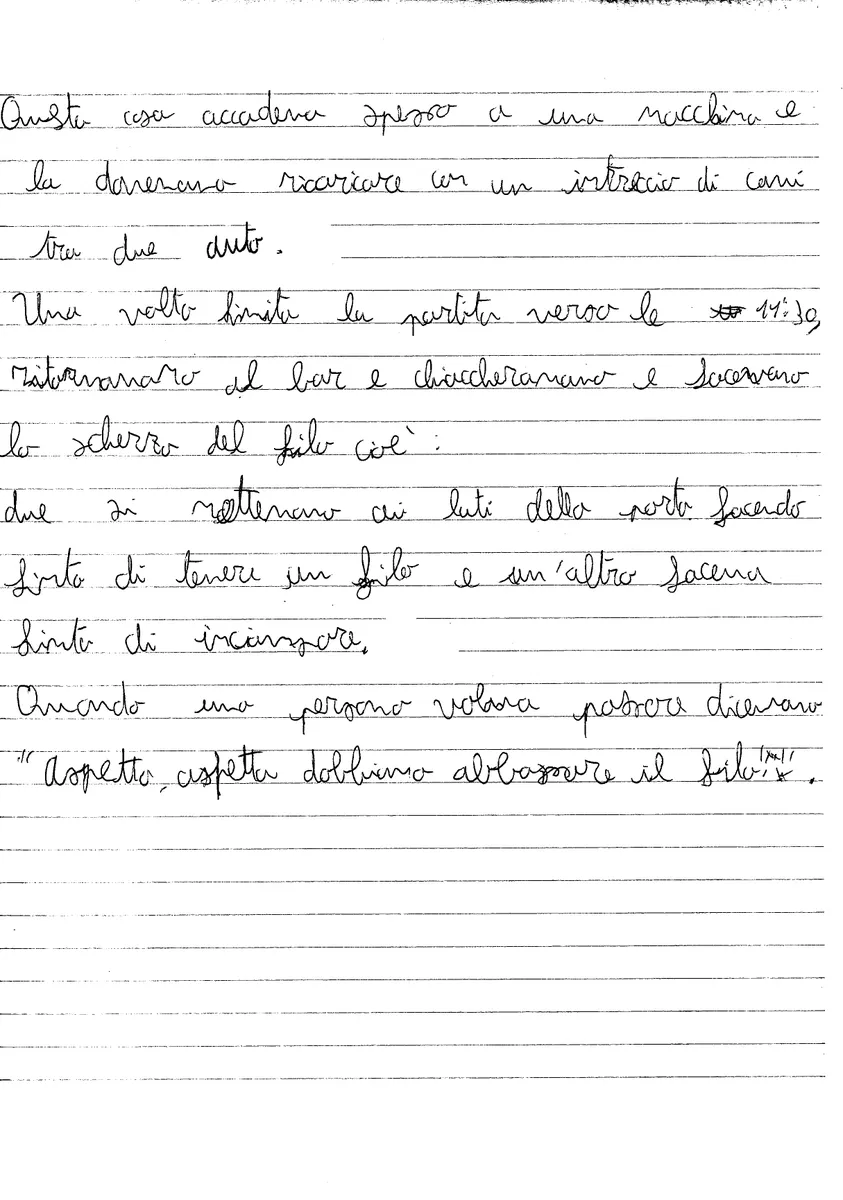 Questa cosa accadeva spesso a una macchina e
la dovevano ricaricare con un intreccio di cavi
tra due auto.
Una volta finita la partita verso le 11:30,
ritornavano al bar e chiaccheravano e facevano
lo scherzo del filo cioè:
due si mettevano ai lati della porta facendo
finta di tenere un filo e un'altro faceva
finta di inciampare.
Quando una persona voleva passare dicevano
"Aspetta, aspetta dobbiamo abbassare il filo!".